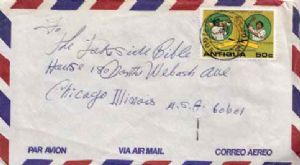 To
The Lakeside Bible
House 180 North Wabash Ave
Chicago Illinois U.S.A. 60601
ANTIGUA 50c
PAR AVION VIA AIR MAIL CORREO AEREO